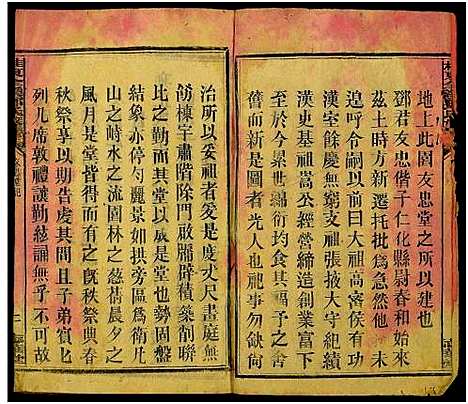 地上此園友思堂之所以建也
鄧君友忠偕子仁化縣尉春和始來
茲土時方新遷托批爲急然他未
遑呼令嗣以前曰大祖高皇帝有
漢宇餘慶窮支祖張掖大守紀績
漢史基祖嵩公經營締造創業富下
至於今纍世繩衍均食其福予之舍
舊而新甚者光人也祀事勿缺尙
治所以妥祖者爰是度
尺書庭無
飭棟宇肅階除門敞麗辟積簗削聯
比之勤而忠堂以成是堂也勢固盤
結象亦停勻麗景如拱旁區爲衛凡
山之峙水之流園林之慈倩晨夕之
風月是堂皆得而有之旣秋祭典春
秋祭享以期告虔其間且子弟賓匕
列几席敦禮讓勤慈誦無乎不可故